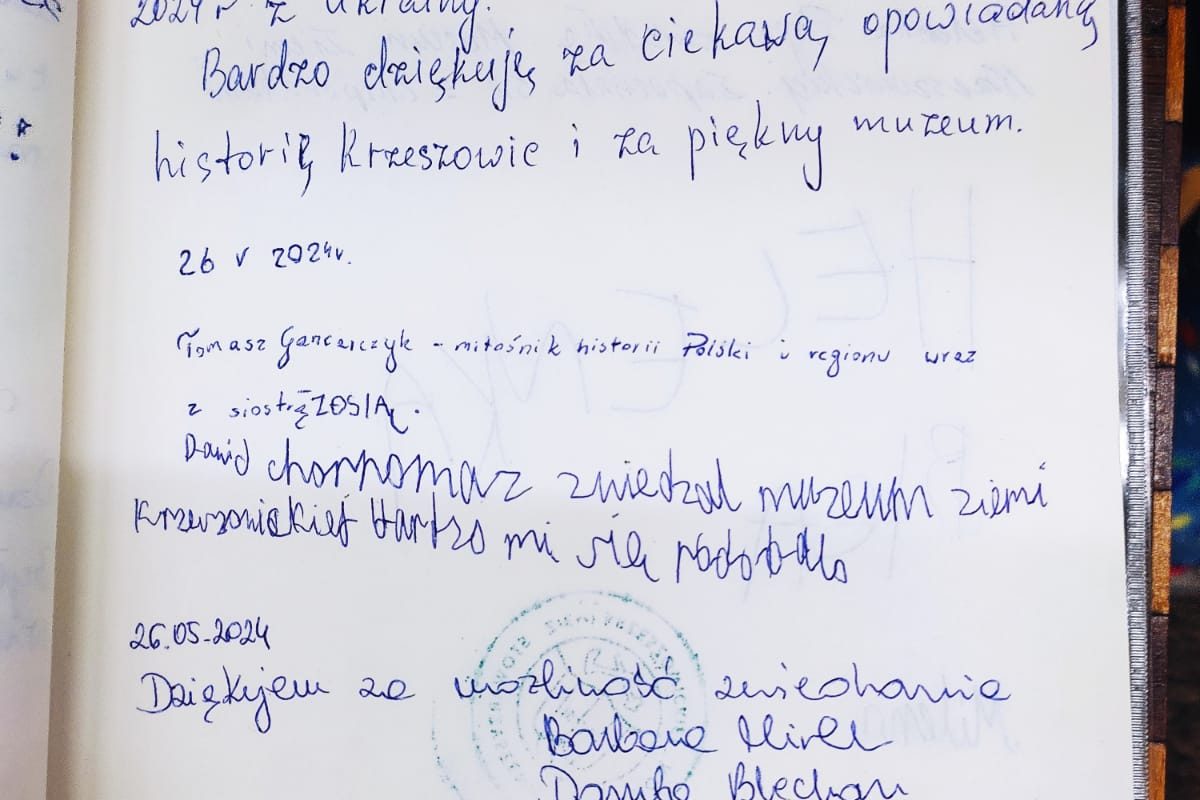 2024 r z Ukrainy.
Bardzo dziękuję za ciekawą opowiadaną
historię Krzeszowic i za piękny muzeum.
26 V 2024r.
Tomasz Gancarczyk - miłośnik historii Polski i regionu wraz
z siostrą ZOSIĄ.
Dawid chornomaz zwiedzał muzeum ziemi
Bartzo mi się podobało
26.05.2024
Dziękujem za możliwość zwiedzania
Barbara Mirek
Blechar